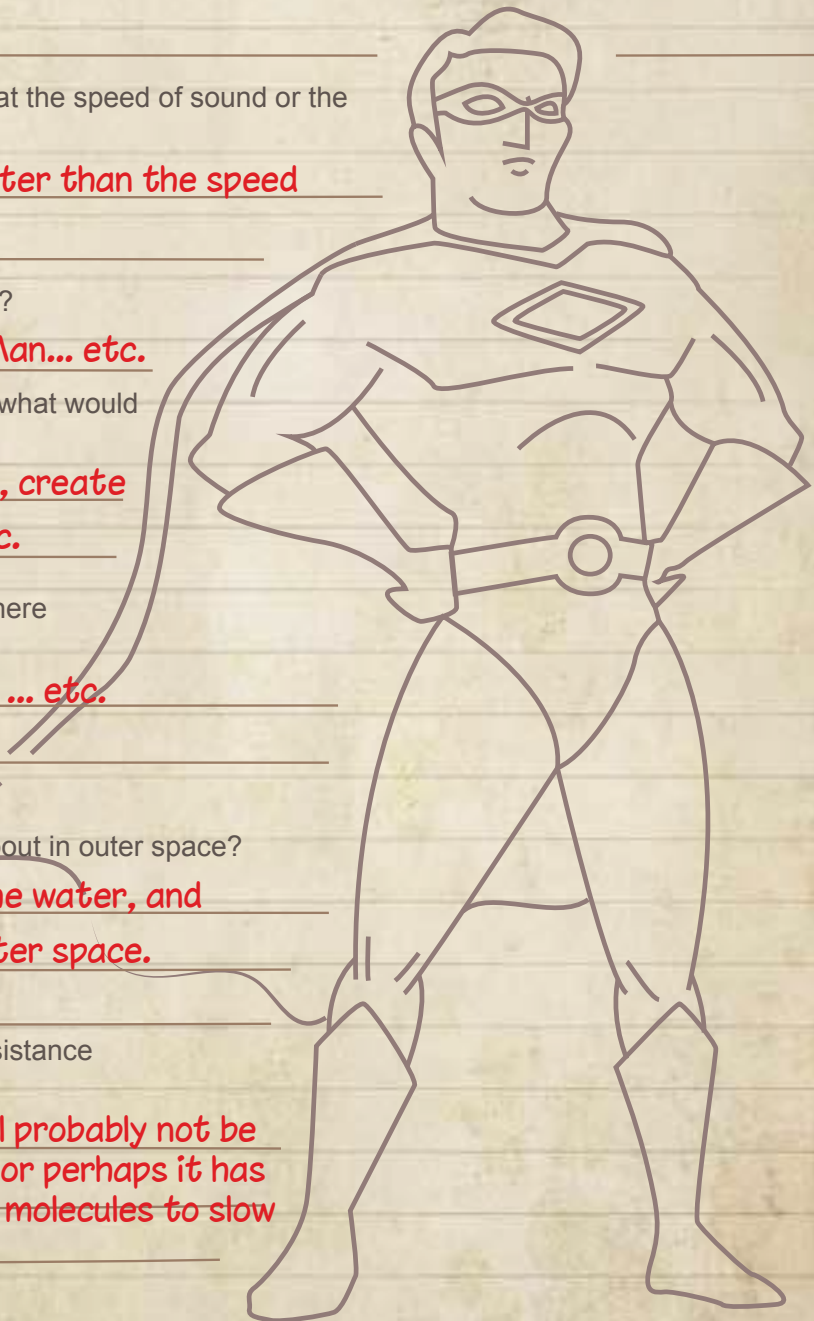 at the speed of sound or the
ter than the speed
?
Man... etc.
what would
, create
c.
here
... etc.
out in outer space?
he water, and
ter space.
sistance
l probably not be
or perhaps it has
molecules to slow